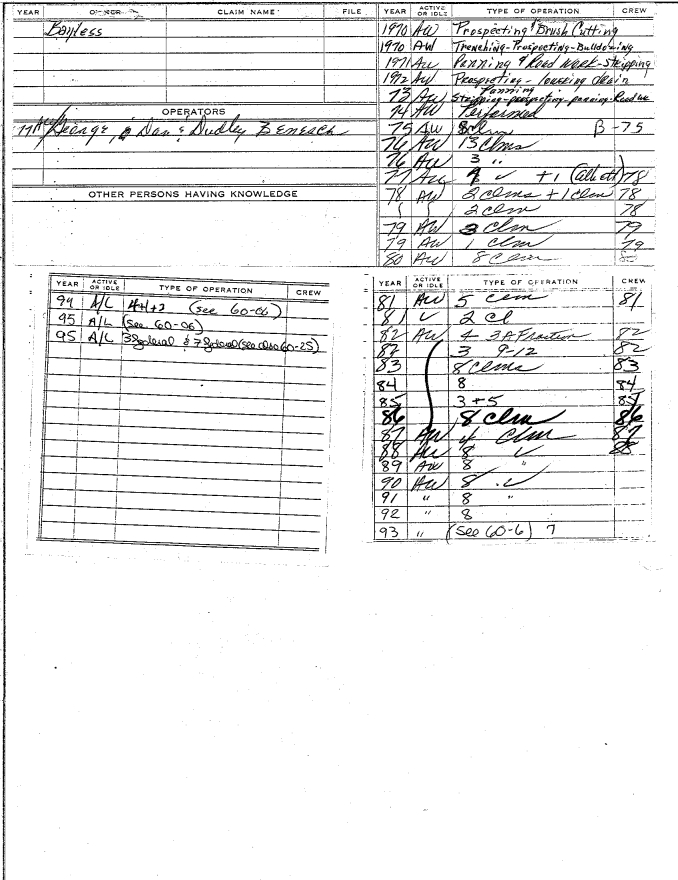 YEAR OWNER CLAIM NAME FILE
Bayless
OPERATORS
George, & Dan & Dudley Benesch
OTHER PERSONS HAVING KNOWLEDGE
YEAR ACTIVE OR IDLE TYPE OF OPERATION CREW
1970 AW Prospecting & Brush Cutting
1970 AW Trenching-Prospecting-Bulldozing
1971 AW Panning & Road Work-Stripping
1972 AW Prospecting - drain
Panning
73 AW Stripping-prospecting-panning-Road
74 AW Performed
75 AW 8 clm B-75
76 AW 13 Clms
76 AW 3 "
77 AW ✓ +1 78
78 AW 2 clms + 1 clm 78
2 clm 78
79 AW 3 Clm 79
79 AW 1 Clm 79
80 AW 8 Clm 80
YEAR ACTIVE OR IDLE TYPE OF OPERATION CREW
94 A/L 4+1+2 (see 60-06)
95 A/L (see 60-06)
95 A/L 3 federal & 7 federal (see also 60-25)
YEAR ACTIVE OR IDLE TYPE OF OPERATION CREW
81 AW 5 clm 81
81 ✓ 2 cl
82 AW 4 3 A Fraction 82
82 3 9-12 82
83 8 Clms 83
84 8 84
85 3+5 85
86 8 Clm 86
87 AW 4 Clm 87
88 AW 8 ✓ 88
89 AW 8 "
90 AW 8 ✓
91 " 8 "
92 " 8
93 " (see 60-6) 7